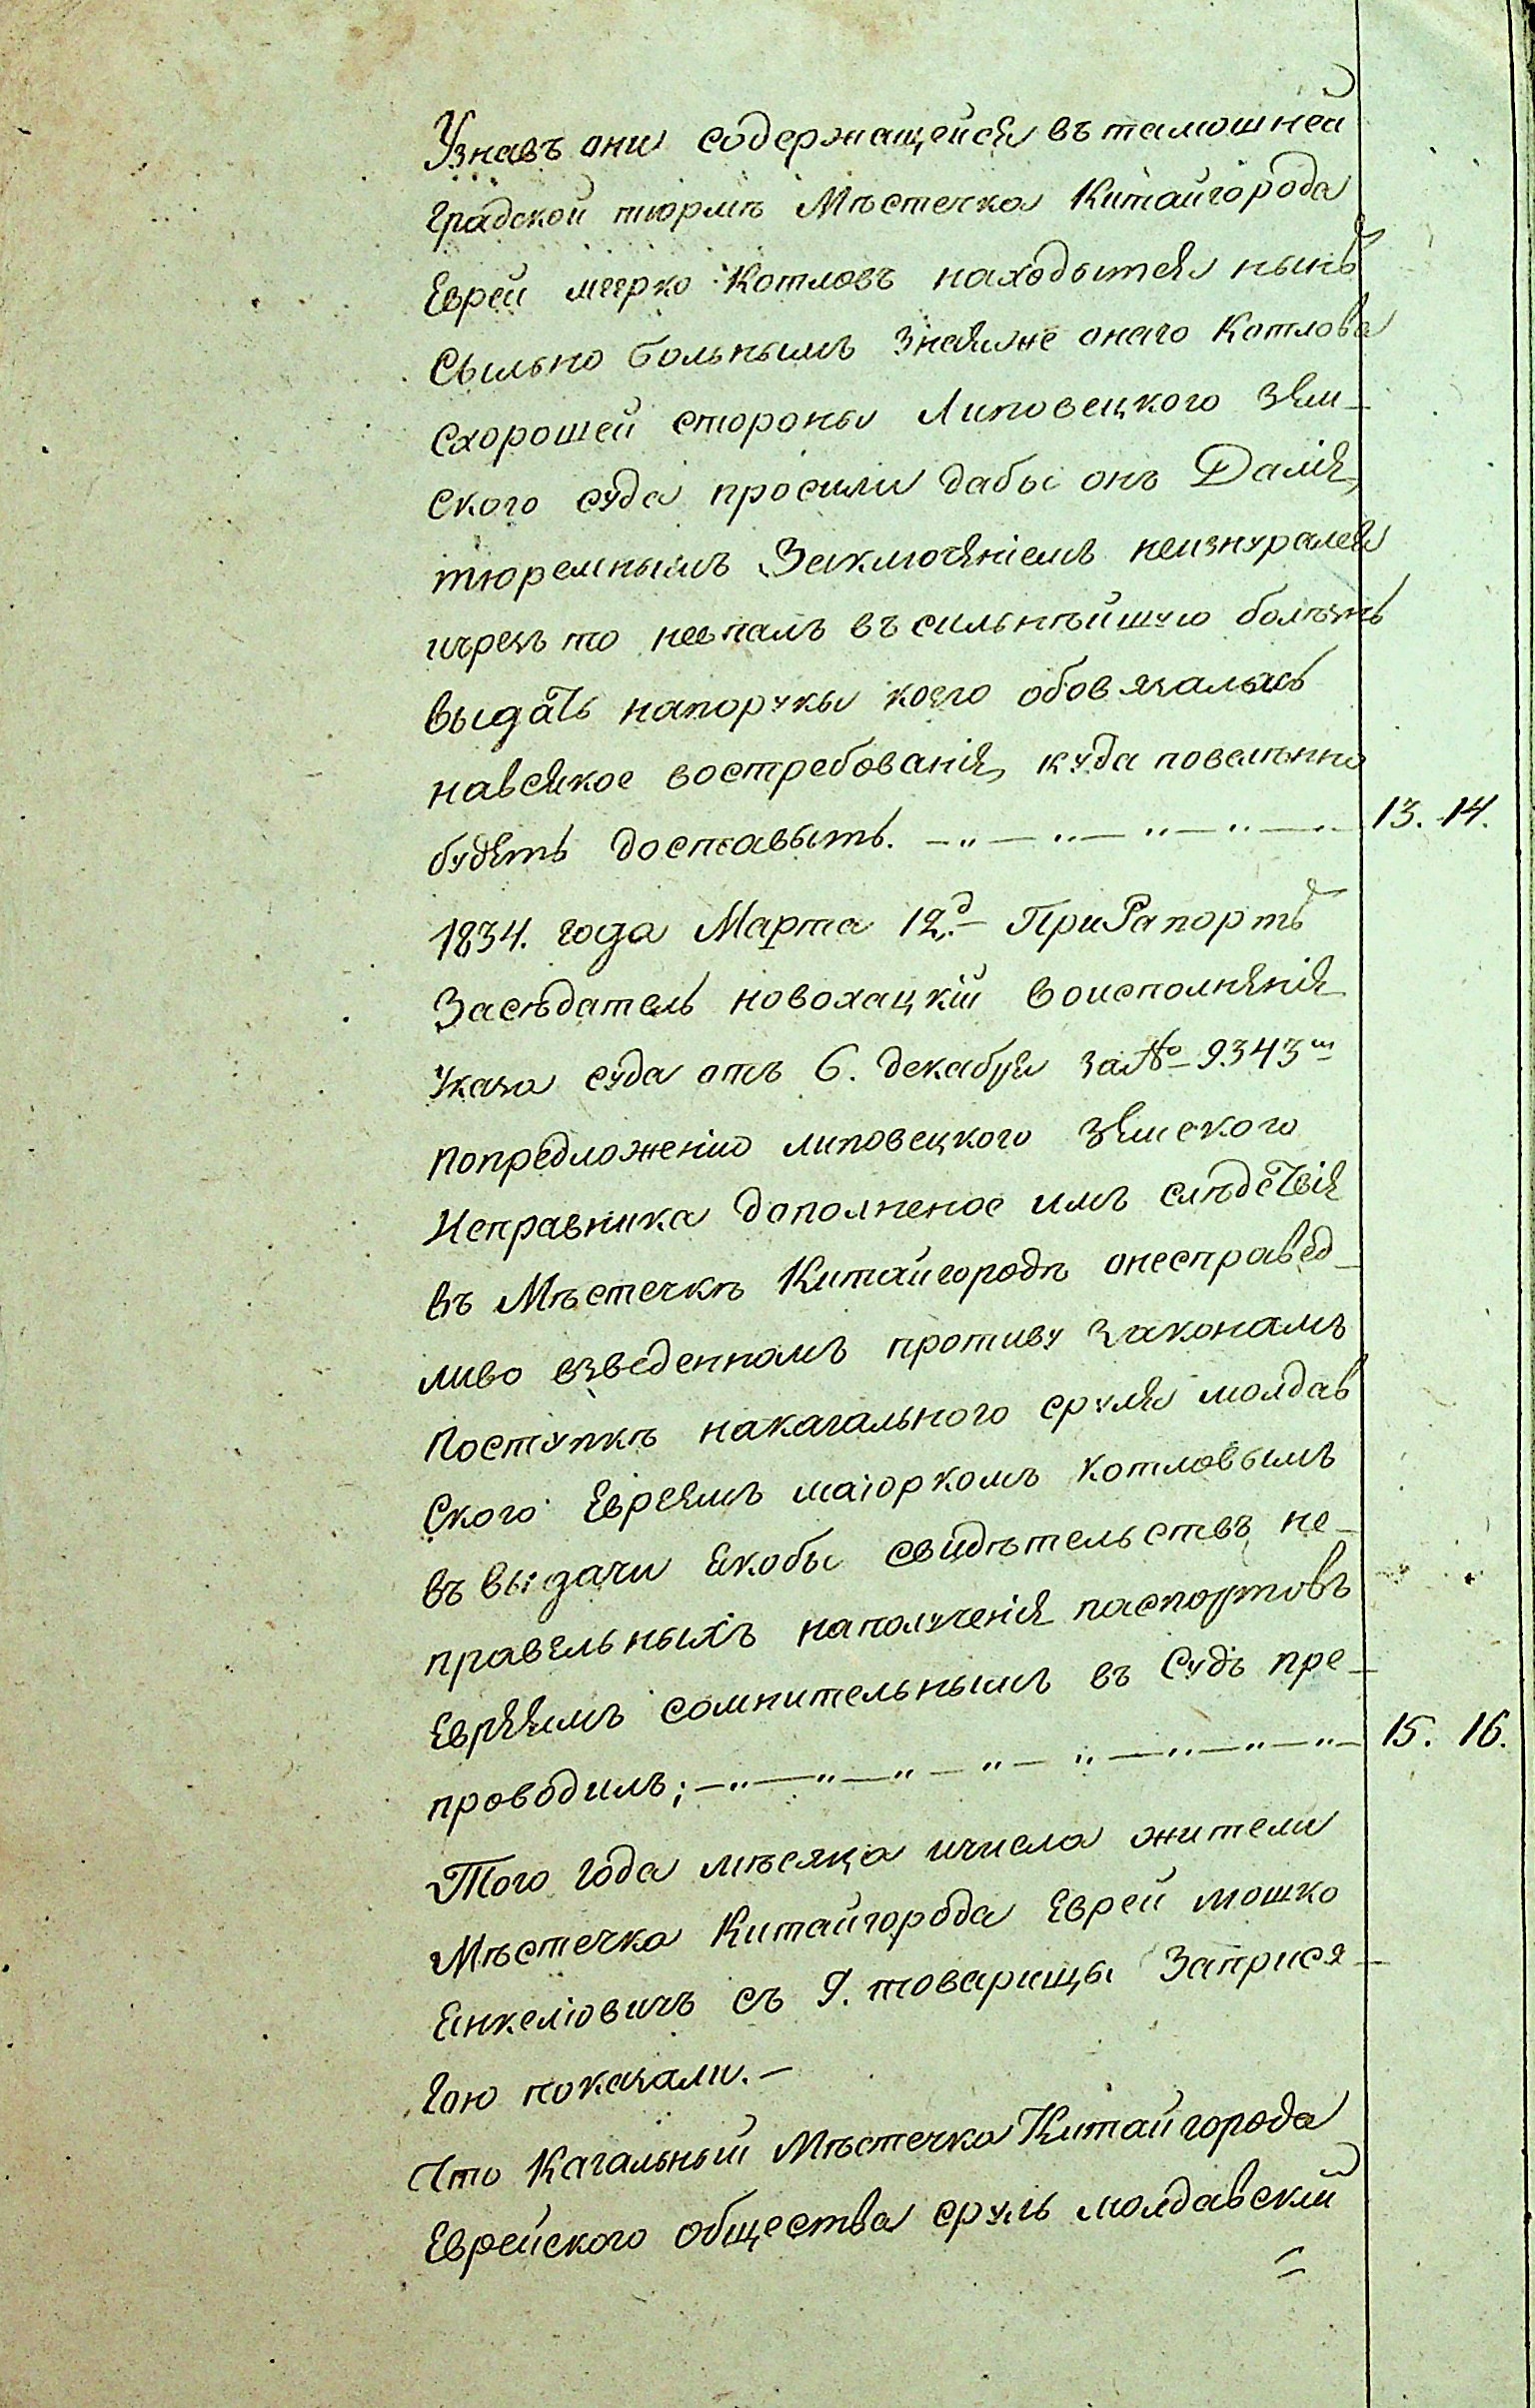 Узнавъ они содержащейся въ тамошней
градской тюрмѣ Мѣстечка Китайгорода
Еврей меерко Котловъ находытся нынѣ
сыльно больнымъ зная же онаго Котлова
схорошей стороны Липовецкого Зем-
ского суда просили дабы онъ Далія
тюремнымъ Заключеніемъ неизнурался
ичрезъ то невпалъ въ сильнѣйшую болѣзнь
выдать напорукы коего обовязалысь
навсякое востребованія куда повелѣнно
будетъ доставыть. — „ — „ — „ — „ — „ — 13. 14.
1834. года Марта 12.д — При Рапортѣ
Засѣдатель новохацкій воисполненія
Указа суда отъ 6. декабря за № 9343ш
попредложенію липовецкого земского
Исправника дополненое имъ слѣдствія
въ Мѣстечкѣ Китайгородѣ онесправед-
ливо взведенномъ противу законамъ
поступкѣ накагального сруля молдав
ского Евреемъ маіоркомъ котловымъ
въ выдачи якобы свидѣтельствъ не-
правельныхъ наполученія паспортовъ
Евреямъ сомнительнымъ въ Судъ пре-
проводилъ; — „ — „ — „ — „ — „ — „ — „ — „ — 15. 16.
Того года мѣсяца ичисла жители
Мѣстечка Китайгорода Еврей мошко
Янкеліовичъ съ 9. товарищы Заприся-
гою показали. —
Что Кагальный Мѣстечка Китайгорода
Еврейского общества сруль молдавскій
=